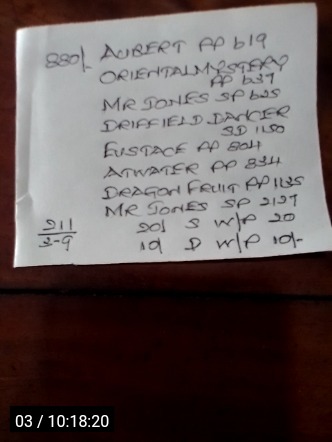 880/- AUBERT PP 619
ORIENTAL MYSTERY
PP 637
MR JONES SP 625
DRIFFIELD DANCER
SD 1150
EUSTACE PP 804
ATWATER PP 834
DRAGON FRUIT PP 1125
MR JONES SP 2127
211 20/ S W/P 20
3-9 10/ D W/P 10/-
03 / 10:18:20